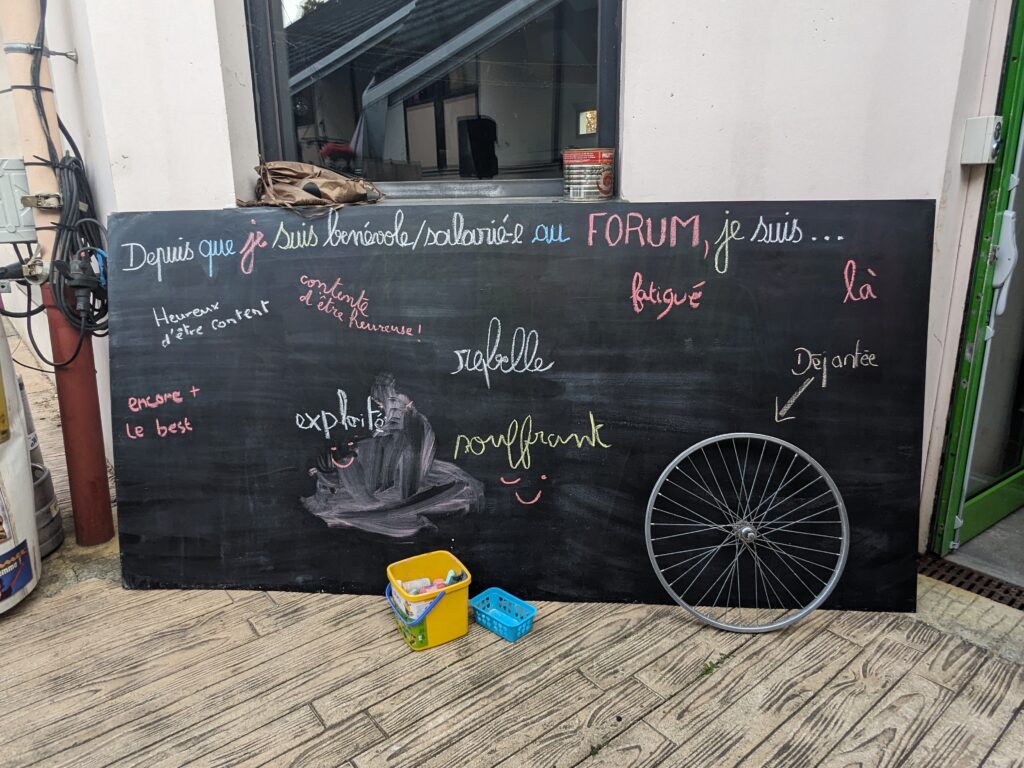 Depuis que je suis bénévole/salarié-e au FORUM, je suis...
Heureux
d'être content
contente
d'être heureuse!
fatigué
là
rebelle
Déjantée
encore +
le best
exploité
souffrant